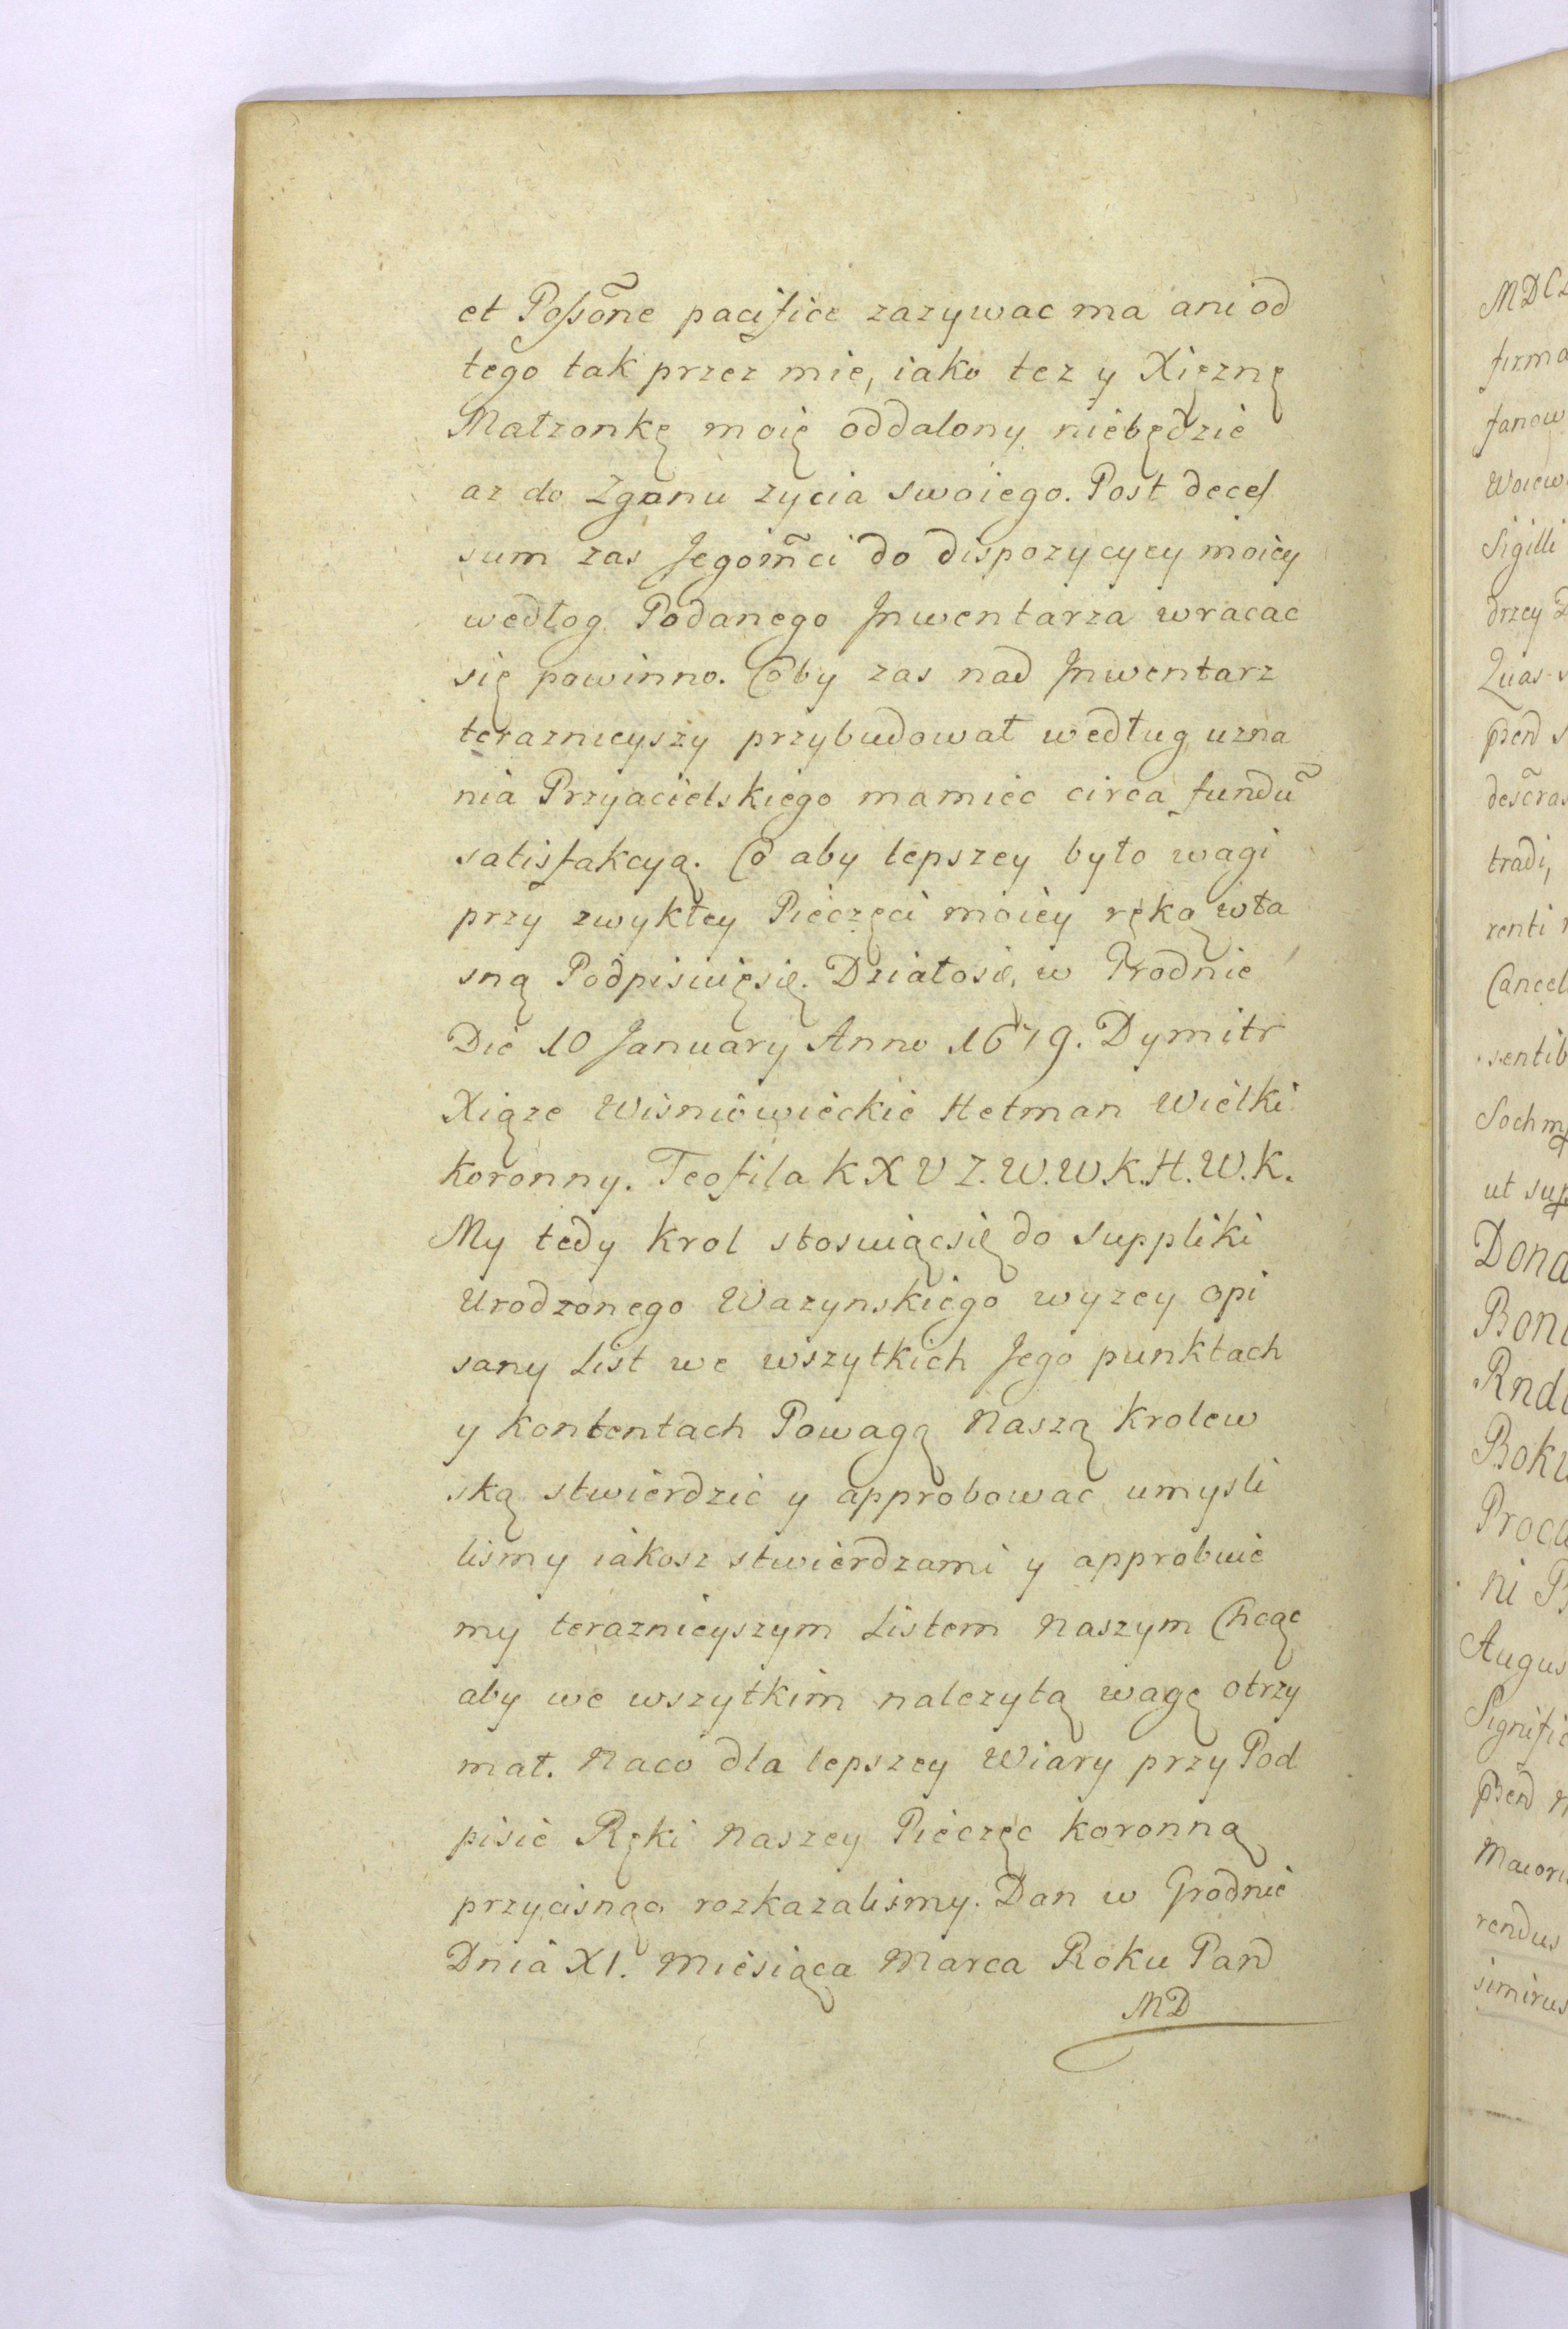 et Possõne pacifice zazywac ma ani od
tego tak przez mie, iako tez y Xięznę
Małzonkę moię oddalony niebędzie
az do Zgonu zycia swoiego. Post deces
sum zas Jegom̃ci do dispozycyey moiey
wedłog Podanego Jnwentarza wracac
się powinno. Coby zas nad Jnwentarz
teraznieyszy przybudował według uzna
nia Przyacielskiego mamiec circa fundũ
satisfakcyą. Co aby lepszey było wagi
przy zwykłey Pieczęci moiey ręką wła
sną Podpisuięsię. Działosię, w Grodnie
Die 10 January Anno 1679. Dymitr
Xiąze Wisniowieckie Hetman Wielki
Koronny. Teofila K X V Z. W. W. K. H. W. K.
My tedy Krol stosuiącsię do Suppliki
Urodzonego Wazynskiego wyzey opi
sany List we wszytkich Jego punktach
y Kontentach Powagą Naszą Krolew
ską stwierdzic y approbowac umysli
lismy iakosz stwierdzami y approbuie
my teraznieyszym Listem Naszym Chcąc
aby we wszytkim nalezytą wagę otrzy
mał. Naco dla lepszey Wiary przy Pod
pisie Ręki Naszey Pieczęc Koronną
przycisnąc rozkazalismy. Dan w Grodnie
Dnia XI. Miesiąca Marca Roku Pand
MD
MDC
firma
fanow
Woiew
Sigilli
drzey
Quas
tradi,
renti
Cancel
sentib
Soch
ut sup
Dona
Boni
Rndi
Boku
Proca
ni
Augus
Signific
Maiori
rendus
simirus